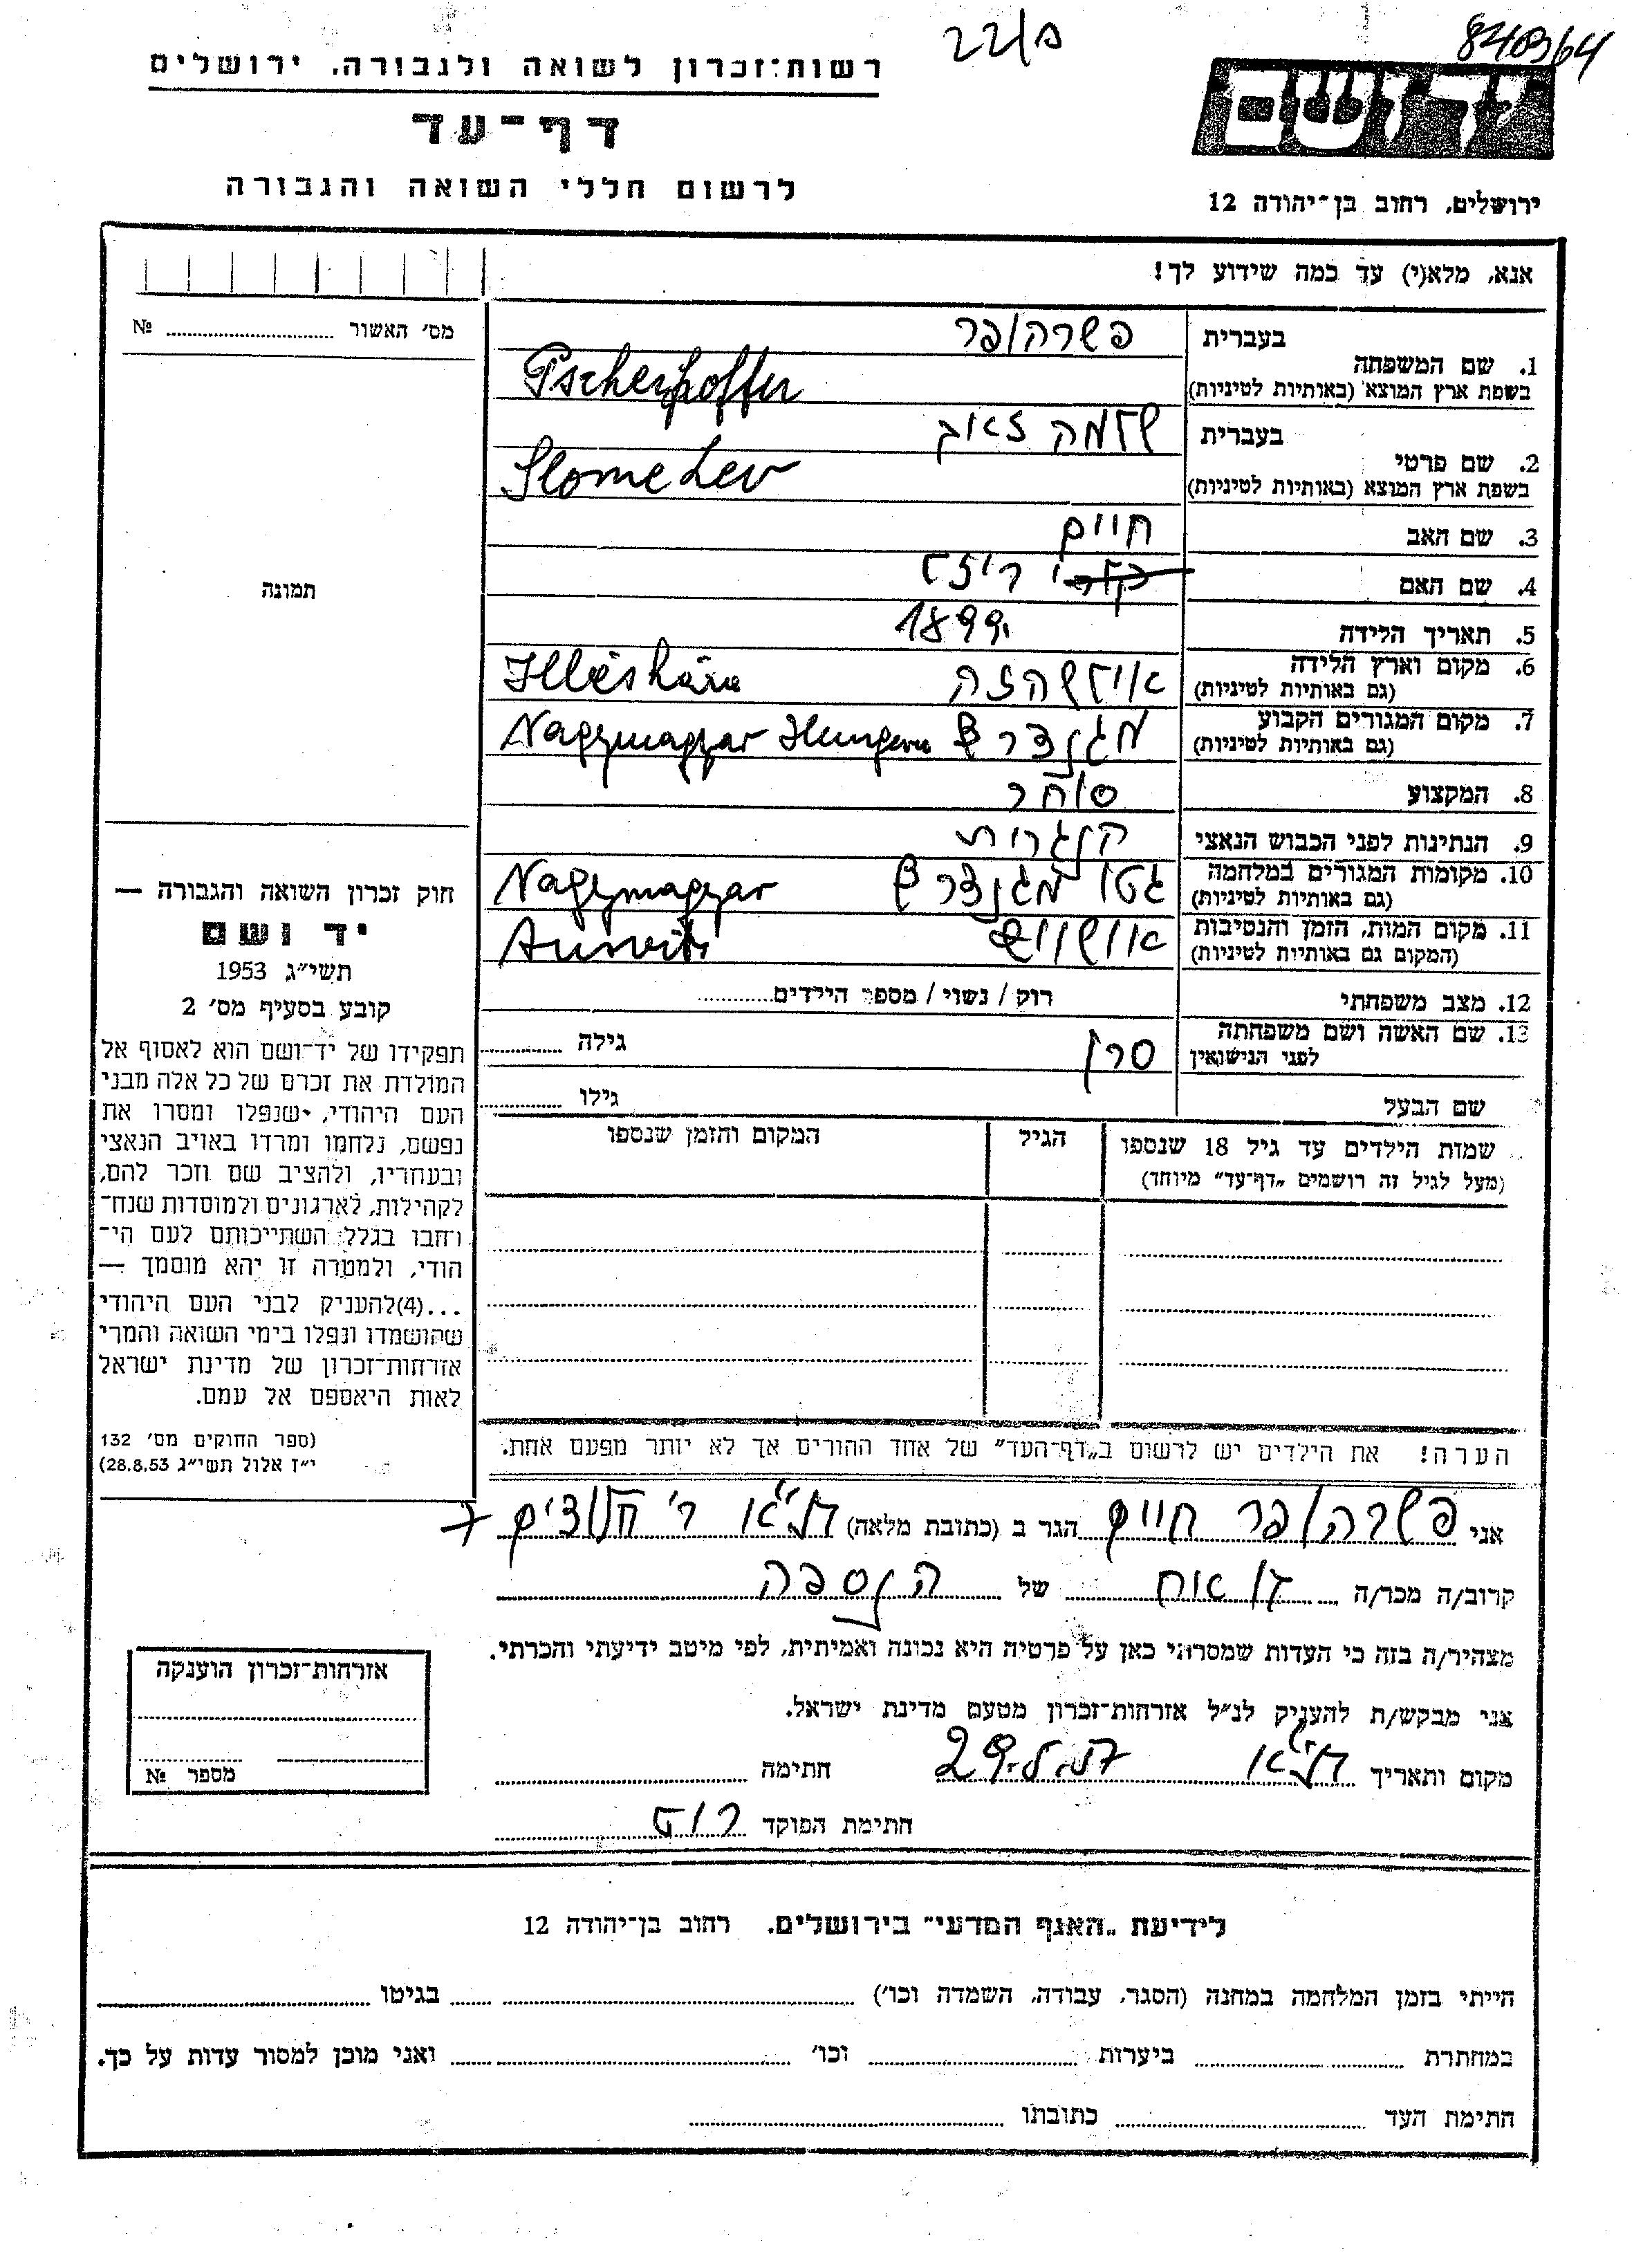 22/ם
840364
רשות־זכרון לשואה ולגבורה, ירושלים
דף־עד
לרשום חללי השואה והגבורה
יד ושם
ירושלים, רחוב בן־יהודה 12
אנא, מלא(י) עד כמה שידוע לך!
מס׳ האשור № 
תמונה
1. שם המשפחה
בעברית פשרהופר
בשפת ארץ המוצא (באותיות לטיניות) Pscherhoffer
2. שם פרטי
בעברית שלמה זאב
בשפת ארץ המוצא (באותיות לטיניות) Slome Lev
3. שם האב חיים
4. שם האם ריזל
5. תאריך הלידה 1899
6. מקום וארץ הלידה
(גם באותיות לטיניות) Illésháza
7. מקום המגורים הקבוע
(גם באותיות לטיניות) Nagymagyar
8. המקצוע סוחר
9. הנתינות לפני הכבוש הנאצי הונגרית
10. מקומות המגורים במלחמה גטו
(גם באותיות לטיניות) Nagymagyar
11. מקום המות, הזמן והנסיבות אושוויץ
(המקום גם באותיות לטיניות)
12. מצב משפחתי רוק / נשוי / מספר הילדים
13. שם האשה ושם משפחתה
לפני הנישואין גילה
שם הבעל גילו
שמות הילדים עד גיל 18 שנספו
(מעל לגיל זה רושמים „דף־עד״ מיוחד)
הגיל
המקום והזמן שנספו
חוק זכרון השואה והגבורה —
יד ושם
תשי״ג 1953
קובע בסעיף מס׳ 2
תפקידו של יד־ושם הוא לאסוף אל
המולדת את זכרם של כל אלה מבני
העם היהודי, שנפלו ומסרו את
נפשם, נלחמו ומרדו באויב הנאצי
ובעוזריו, ולהציב שם וזכר להם,
לקהילות, לארגונים ולמוסדות שנח־
רחבו בגלל השתייכותם לעם הי־
הודי, ולמטרה זו יהא מוסמך —
...(4) להעניק לבני העם היהודי
שהושמדו ונפלו בימי השואה והמרי
אזרחות־זכרון של מדינת ישראל
לאות היאספם אל עמם.
(ספר החוקים מס׳ 132
י״ז אלול תשי״ג 28.8.53)
הערה! את הילדים יש לרשום ב„דף־העד״ של אחד ההורים אך לא יותר מפעם אחת.
אני פשרהופר חיים הגר ב (כתובת מלאה) ת״א ר׳ חלוצים 7
קרוב/ה מכר/ה של הנספה
מצהיר/ה בזה כי העדות שמסרתי כאן על פרטיה היא נכונה ואמיתית, לפי מיטב ידיעתי והכרתי.
אני מבקש/ת להעניק לנ״ל אזרחות־זכרון מטעם מדינת ישראל.
מקום ותאריך ת״א חתימה
חתימת הפוקד
אזרחות־זכרון הוענקה
מספר №
לידיעת „האגף המדעי״ בירושלים, רחוב בן־יהודה 12
הייתי בזמן המלחמה במחנה (הסגר, עבודה, השמדה וכו׳) בגיטו
במחתרת ביערות וכו׳ ואני מוכן למסור עדות על כך.
חתימת העד כתובתו